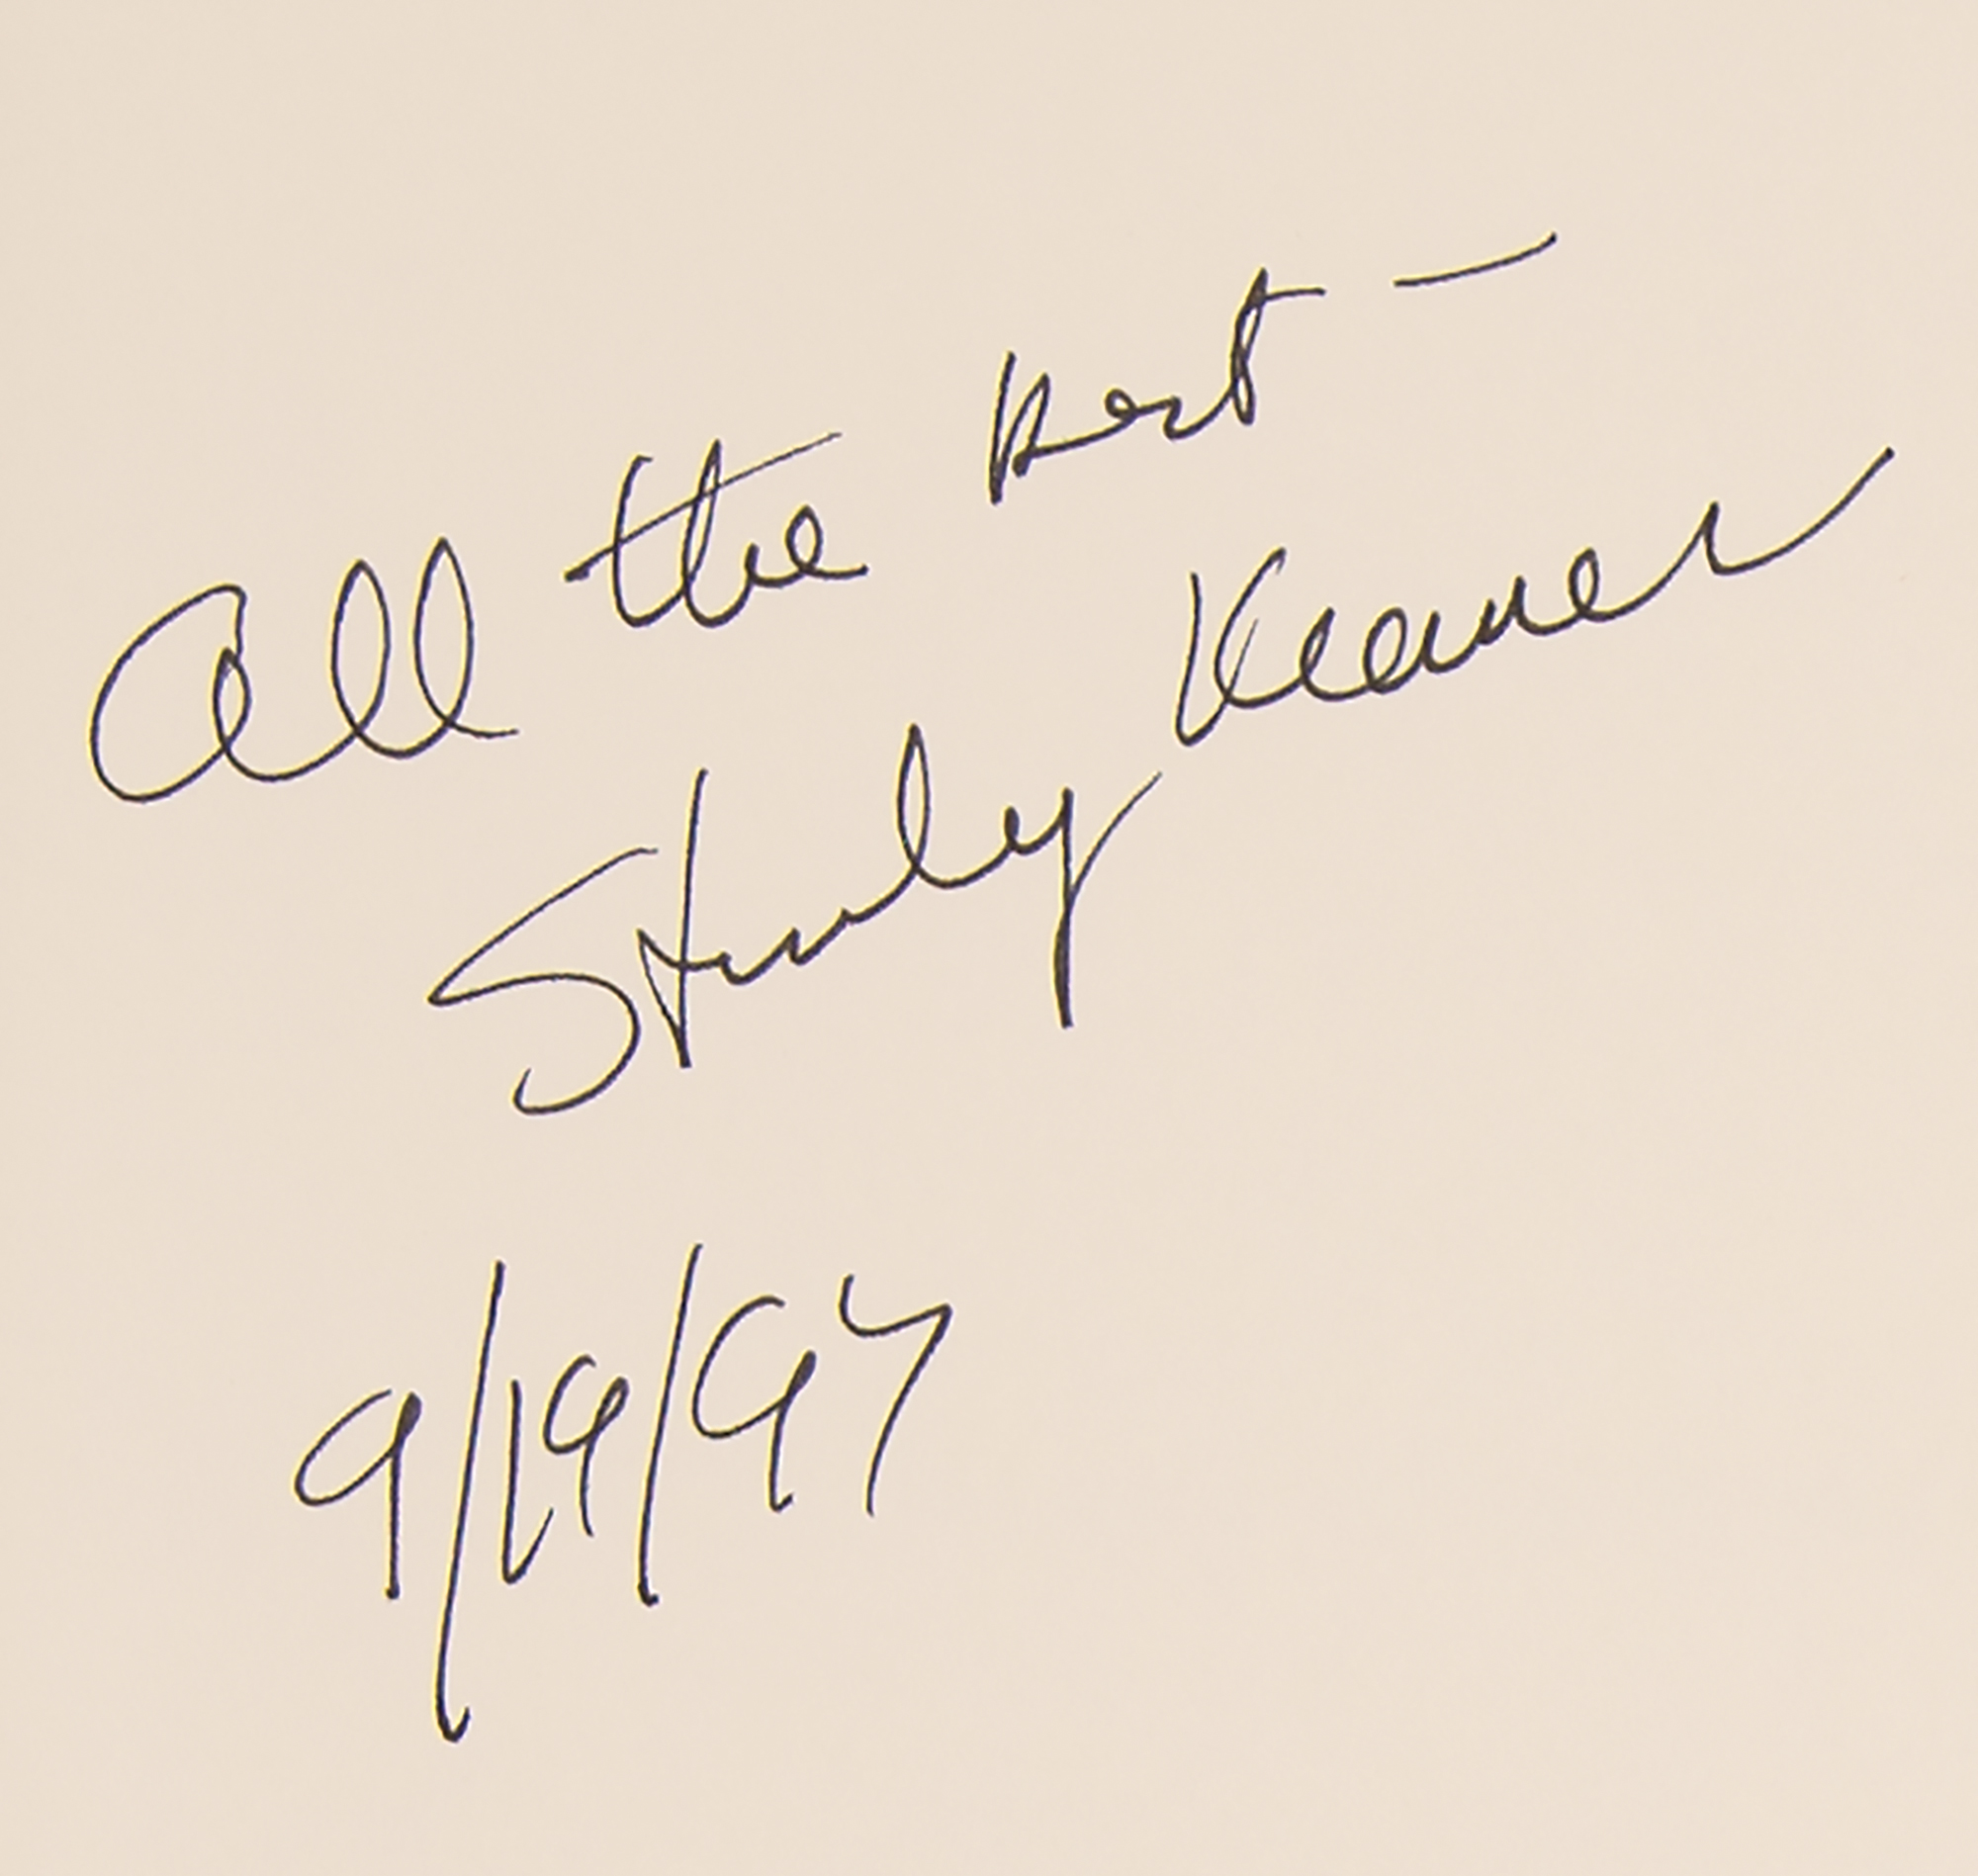 All the best —
Stanley Kramer
9/19/97